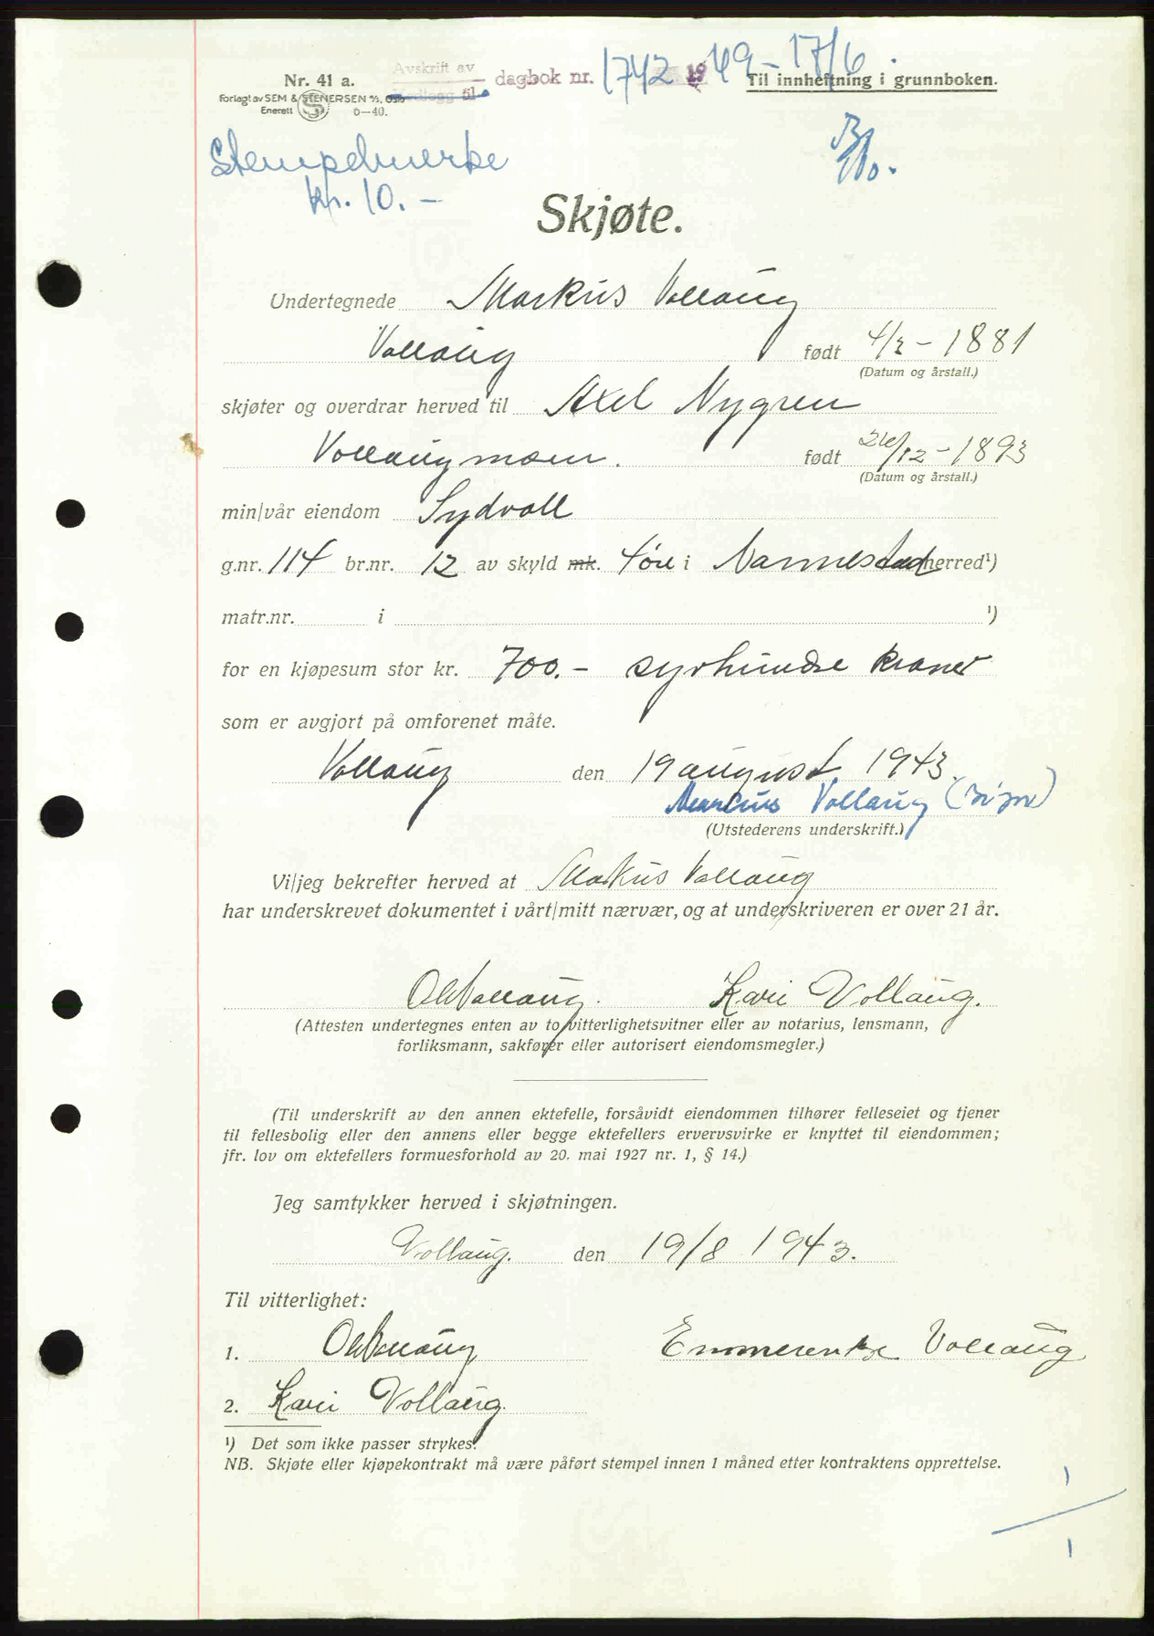 Nr. 41 a.
Forlagt av SEM & STENERSEN A/S, Oslo
Enerett 6-40.
Avskrift av
dagbok nr. 1742 1949-17/6.
Til innheftning i grunnboken.
Stempelmerke
kr. 10.-
Skjøte.
Undertegnede Markus Vollaug
Vollaug født 4/3-1881
(Datum og årstall.)
skjøter og overdrar herved til Axel Nygren
Vollaugmoen. født 26/12-1893
(Datum og årstall.)
min/vår eiendom Sydvoll
g.nr. 114 br.nr. 12 av skyld mk. 4 øre i Nannestad herred¹)
matr.nr. i ¹)
for en kjøpesum stor kr. 700.- syvhundre kroner
som er avgjort på omforenet måte.
Vollaug den 19 august 1943.
Markus Vollaug (sign)
(Utstederens underskrift.)
Vi/jeg bekrefter herved at Markus Vollaug
har underskrevet dokumentet i vårt/mitt nærvær, og at underskriveren er over 21 år.
Ole Vollaug. Kari Vollaug.
(Attesten undertegnes enten av to vitterlighetsvitner eller av notarius, lensmann,
forliksmann, sakfører eller autorisert eiendomsmegler.)
(Til underskrift av den annen ektefelle, forsåvidt eiendommen tilhører felleseiet og tjener
til fellesbolig eller den annens eller begge ektefellers ervervsvirke er knyttet til eiendommen;
jfr. lov om ektefellers formuesforhold av 20. mai 1927 nr. 1, § 14.)
Jeg samtykker herved i skjøtningen.
Vollaug. den 19/8 1943.
Til vitterlighet:
1. Ole Vollaug Emmerentse Vollaug
2. Kari Vollaug.
¹) Det som ikke passer strykes.
NB. Skjøte eller kjøpekontrakt må være påført stempel innen 1 måned etter kontraktens opprettelse.
1
1